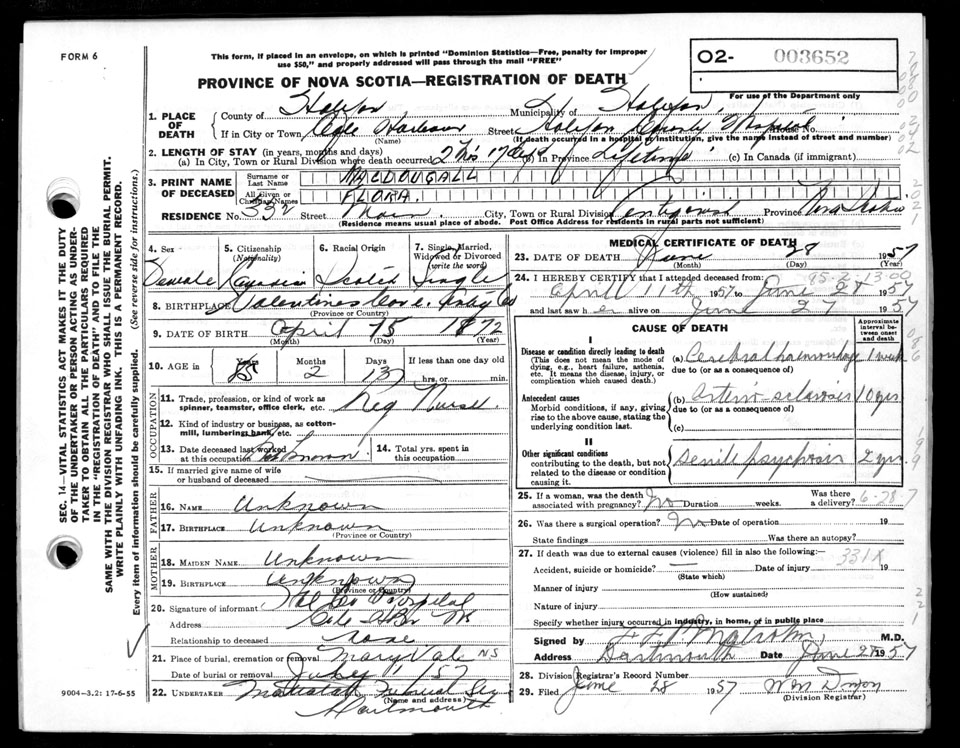 FORM 6
This form, if placed in an envelope, on which is printed "Dominion Statistics—Free, penalty for improper
use $50," and properly addressed will pass through the mail "FREE"
O2- 003652
PROVINCE OF NOVA SCOTIA—REGISTRATION OF DEATH
For use of the Department only
1. PLACE OF DEATH
County of Halifax Municipality of Halifax
If in City or Town, Cole Harbour Street Halifax County Hospital House No.
(Name) (If death occurred in a hospital or institution, give the name instead of street and number)
2. LENGTH OF STAY (in years, months and days)
(a) In City, Town or Rural Division where death occurred 2 Mos 17 days (b) In Province Lifetime (c) In Canada (if immigrant)
3. PRINT NAME OF DECEASED
Surname or Last Name MACDOUGALL
All Given or Christian Names FLORA
RESIDENCE No. 332 Street Main City, Town or Rural Division Antigonish Province Nova Scotia
(Residence means usual place of abode. Post Office Address for residents in rural parts not sufficient)
SEC. 14—VITAL STATISTICS ACT MAKES IT THE DUTY
OF THE UNDERTAKER OR PERSON ACTING AS UNDER-
TAKER TO OBTAIN ALL THE PARTICULARS REQUIRED
IN THE "REGISTRATION OF DEATH" AND TO FILE THE
SAME WITH THE DIVISION REGISTRAR WHO SHALL ISSUE THE BURIAL PERMIT.
WRITE PLAINLY WITH UNFADING INK. THIS IS A PERMANENT RECORD.
Every item of information should be carefully supplied. (See reverse side for instructions.)
4. Sex 5. Citizenship (Nationality) 6. Racial Origin 7. Single, Married, Widowed or Divorced (write the word)
Female Canadian Scotch Single
8. BIRTHPLACE
(Province or Country)
9. DATE OF BIRTH April 15 1872
(Month) (Day) (Year)
10. AGE in Years Months Days If less than one day old
85 2 13 hrs. or min.
OCCUPATION
11. Trade, profession, or kind of work as
spinner, teamster, office clerk, etc. Reg Nurse.
12. Kind of industry or business, as cotton-
mill, lumbering, bank, etc.
13. Date deceased last worked
at this occupation Unknown
14. Total yrs. spent in
this occupation
15. If married give name of wife
or husband of deceased
FATHER
16. NAME Unknown
17. BIRTHPLACE Unknown
(Province or Country)
MOTHER
18. MAIDEN NAME Unknown
19. BIRTHPLACE Unknown
(Province or Country)
20. Signature of informant Hal Co Hospital
Address Cole Hbr NS
Relationship to deceased none
21. Place of burial, cremation or removal Maryvale NS
Date of burial or removal 57
22. UNDERTAKER Funeral
(Name and address)
Dartmouth
9004—3.2: 17-6-55
MEDICAL CERTIFICATE OF DEATH
23. DATE OF DEATH June 28 1957
(Month) (Day) (Year)
24. I HEREBY CERTIFY that I attended deceased from:
95-2-13 00
April 11th 1957 to June 28 1957
and last saw her alive on June 27 1957
CAUSE OF DEATH
Approximate interval between onset and death
I
Disease or condition directly leading to death
(This does not mean the mode of
dying, e.g., heart failure, asthenia,
etc. It means the disease, injury, or
complication which caused death.)
(a) Cerebral haemorrhage 1 week
due to (or as a consequence of)
Antecedent causes
Morbid conditions, if any, giving
rise to the above cause, stating the
underlying condition last.
(b) Arterio-sclerosis 10 yrs
due to (or as a consequence of)
(c)
II
Other significant conditions
contributing to the death, but not
related to the disease or condition
causing it.
Senile psychosis 2 yrs.
25. If a woman, was the death
associated with pregnancy? No Duration weeks. Was there a delivery?
6-28-7
26. Was there a surgical operation? No Date of operation 19
State findings Was there an autopsy?
27. If death was due to external causes (violence) fill in also the following:—
331X
Accident, suicide or homicide? — Date of injury 19
(State which)
Manner of injury
(How sustained)
Nature of injury
Specify whether injury occurred in industry, in home, or in public place
Signed by Malcolm, M.D.
Address Dartmouth Date June 28 1957
28. Division Registrar's Record Number
29. Filed June 28 1957
(Division Registrar)